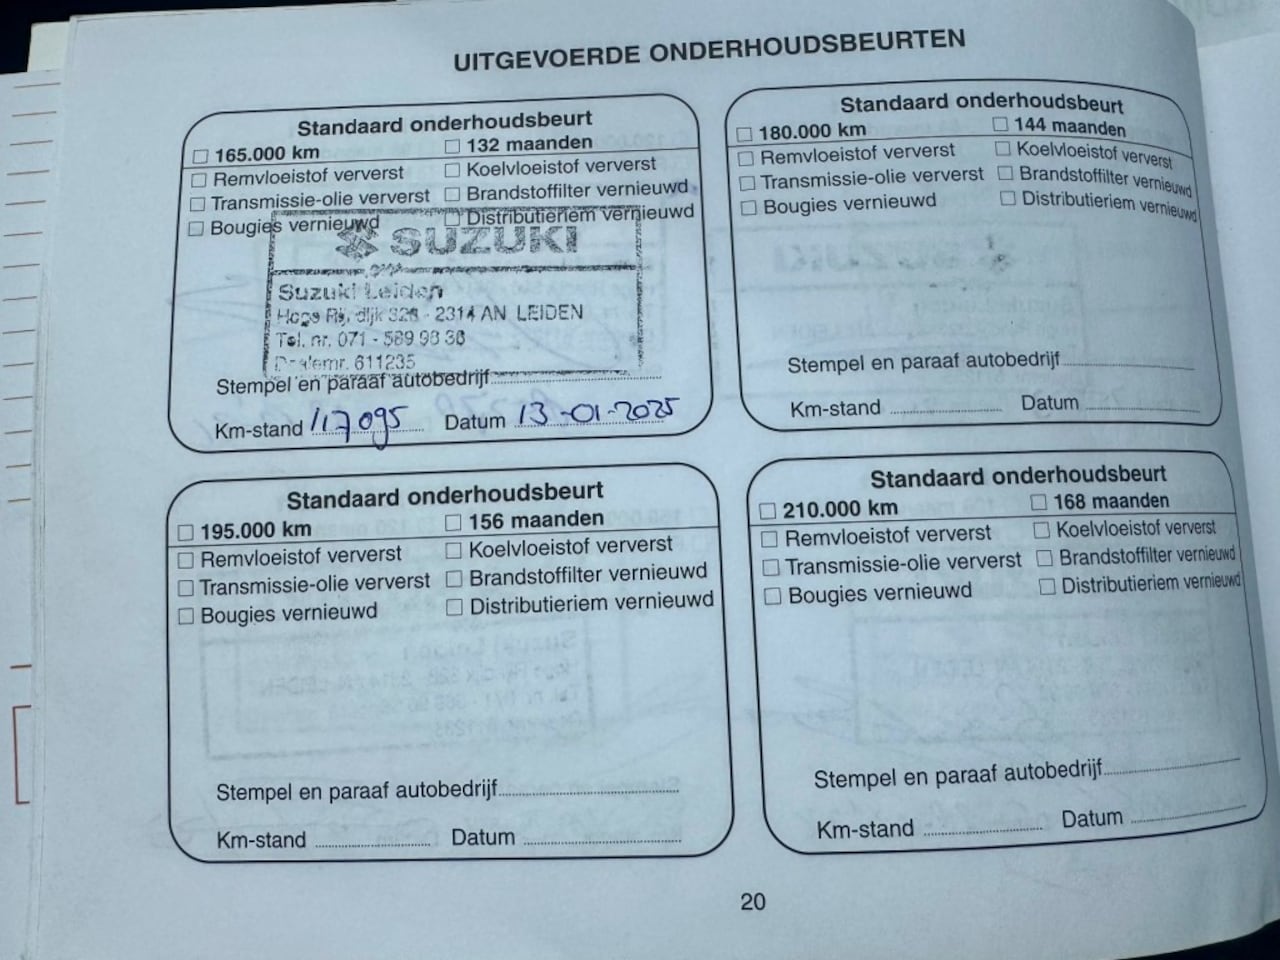 UITGEVOERDE ONDERHOUDSBEURTEN
Standaard onderhoudsbeurt
165.000 km 132 maanden
Remvloeistof ververst Koelvloeistof ververst
Transmissie-olie ververst Brandstoffilter vernieuwd
Bougies vernieuwd Distributieriem vernieuwd
SUZUKI
Suzuki Leiden
Hoge Rijndijk 328 - 2314 AN LEIDEN
Tel. nr. 071 - 589 98 36
Dealernr. 611235
Stempel en paraaf autobedrijf
Km-stand 117095 Datum 13-01-2025
Standaard onderhoudsbeurt
180.000 km 144 maanden
Remvloeistof ververst Koelvloeistof ververst
Transmissie-olie ververst Brandstoffilter vernieuwd
Bougies vernieuwd Distributieriem vernieuwd
Stempel en paraaf autobedrijf
Km-stand Datum
Standaard onderhoudsbeurt
195.000 km 156 maanden
Remvloeistof ververst Koelvloeistof ververst
Transmissie-olie ververst Brandstoffilter vernieuwd
Bougies vernieuwd Distributieriem vernieuwd
Stempel en paraaf autobedrijf
Km-stand Datum
Standaard onderhoudsbeurt
210.000 km 168 maanden
Remvloeistof ververst Koelvloeistof ververst
Transmissie-olie ververst Brandstoffilter vernieuwd
Bougies vernieuwd Distributieriem vernieuwd
Stempel en paraaf autobedrijf
Km-stand Datum
20